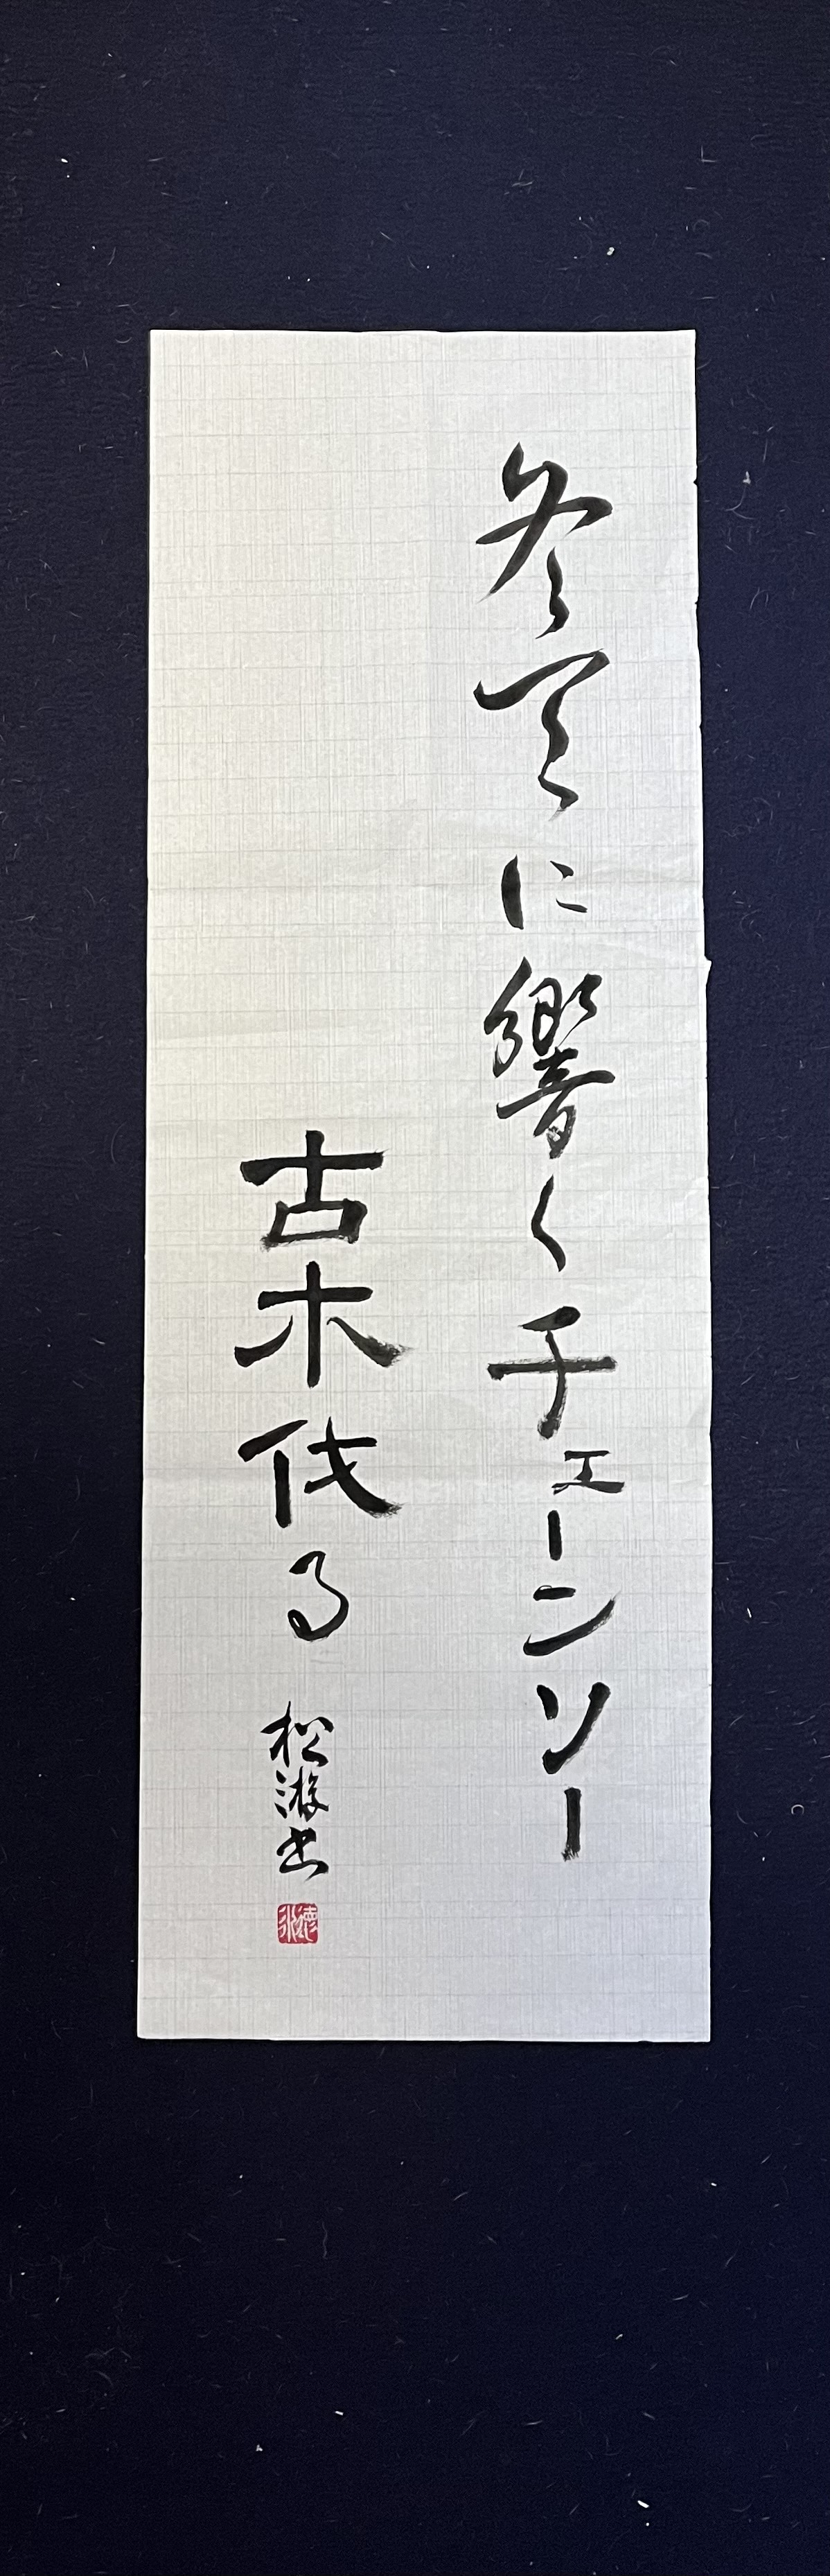 冬天に響くチェーンソー
古木伐る
松游書